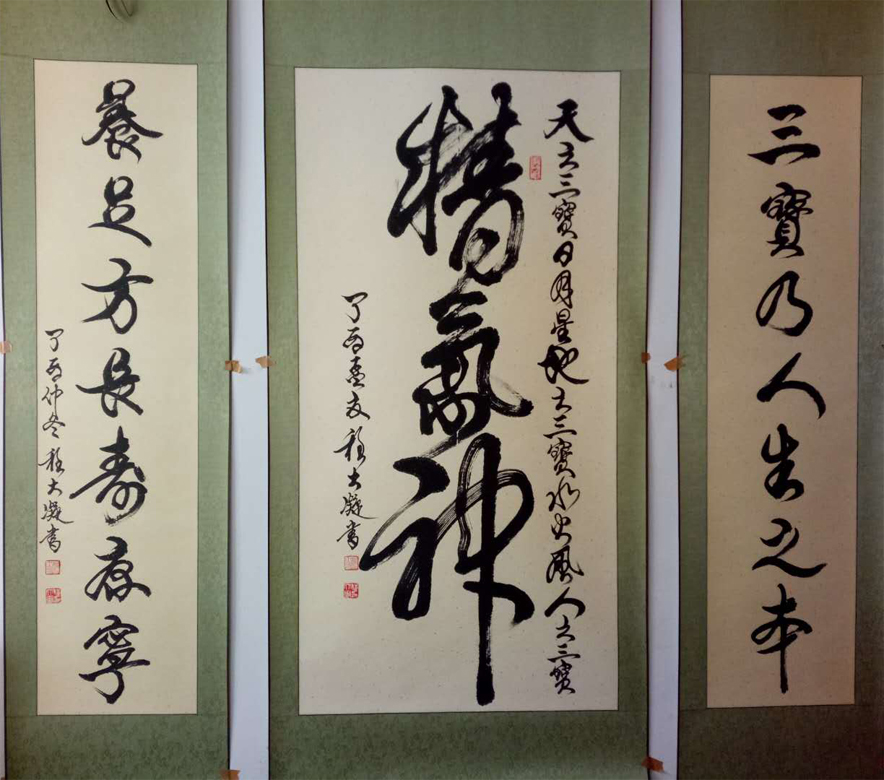 三寶乃人生之本
天有三寶日月星地有三寶水火風人有三寶
精氣神
丁酉孟夏程大凝書
養足方長壽康寧
丁酉仲冬程大凝書